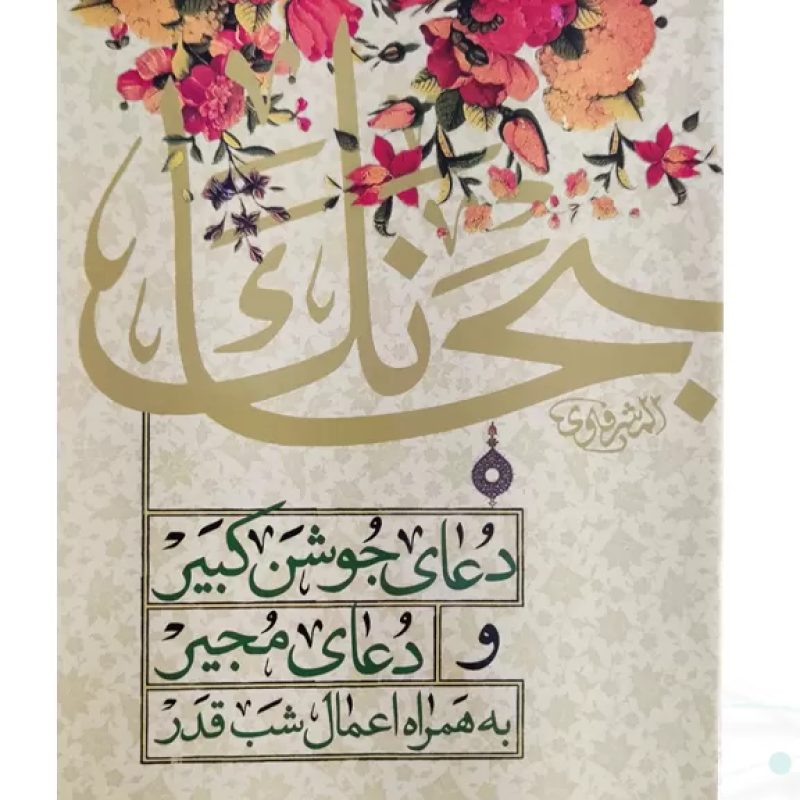 بحَانَكَ
الشرفاوى
دُعای جُوشن کبیر
و دُعای مُجیر
به همراه اعمال شب قدر